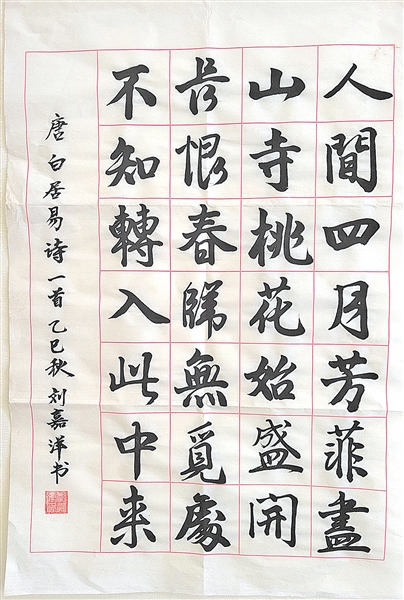 人間四月芳菲盡
山寺桃花始盛開
長恨春歸無覓處
不知轉入此中来
唐白居易诗一首乙巳秋刘嘉洋书